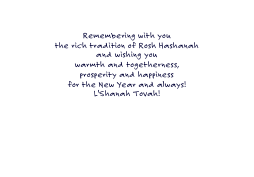 Remembering with you
the rich tradition of Rosh Hashanah
and wishing you
warmth and togetherness,
prosperity and happiness
for the New Year and always!
L'Shanah Tovah!